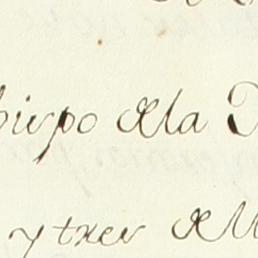 bispo de la
y tres de